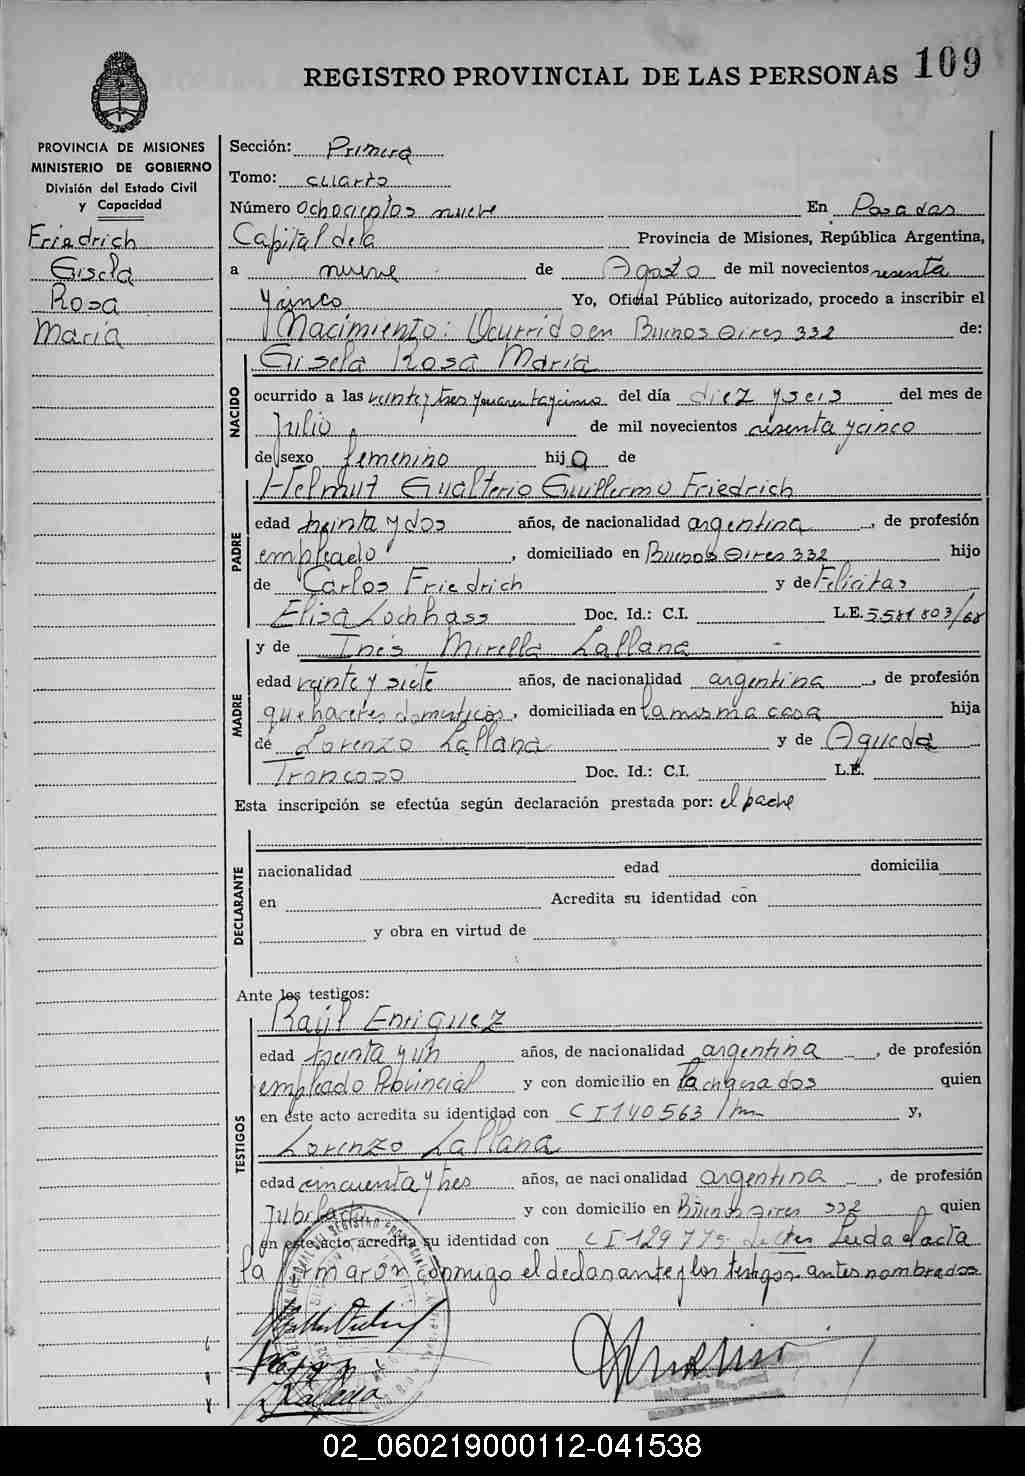 REGISTRO PROVINCIAL DE LAS PERSONAS 109
PROVINCIA DE MISIONES
MINISTERIO DE GOBIERNO
División del Estado Civil
y Capacidad
Friedrich
Gisela
Rosa
María
Sección: Primera
Tomo: cuarto
Número Ochocientos nueve En Posadas
Capital de la Provincia de Misiones, República Argentina,
a nueve de Agosto de mil novecientos sesenta
y cinco Yo, Oficial Público autorizado, procedo a inscribir el
Nacimiento: Ocurrido en Buenos Aires 332 de:
Gisela Rosa María
NACIDO
ocurrido a las veinte y tres y cuarenta y cinco del día diez y seis del mes de
Julio de mil novecientos sesenta y cinco
de sexo femenino hija de
PADRE
Helmut Gualterio Guillermo Friedrich
edad treinta y dos años, de nacionalidad argentina, de profesión
empleado, domiciliado en Buenos Aires 332 hijo
de Carlos Friedrich y de Felicitas
Elisa Lochhass Doc. Id.: C.I. L.E. 5581803/68
MADRE
y de Inés Mirella Lallana
edad veinte y siete años, de nacionalidad argentina, de profesión
quehaceres domesticos, domiciliada en la misma casa hija
de Lorenzo Lallana y de Agueda
Troncoso Doc. Id.: C.I. L.E.
Esta inscripción se efectúa según declaración prestada por: el padre
DECLARANTE
nacionalidad edad domicilia
en Acredita su identidad con
y obra en virtud de
Ante los testigos:
TESTIGOS
Raúl Enriquez
edad treinta y un años, de nacionalidad argentina, de profesión
empleado Provincial y con domicilio en la chacra dos quien
en este acto acredita su identidad con C I 140563 y,
Lorenzo Lallana
edad cincuenta y tres años, de nacionalidad argentina, de profesión
Jubilado y con domicilio en Buenos Aires 332 quien
en este acto acredita su identidad con C I 129775 Leida el acta
la firmaron conmigo el declarante y los testigos antes nombrados
02_060219000112-041538